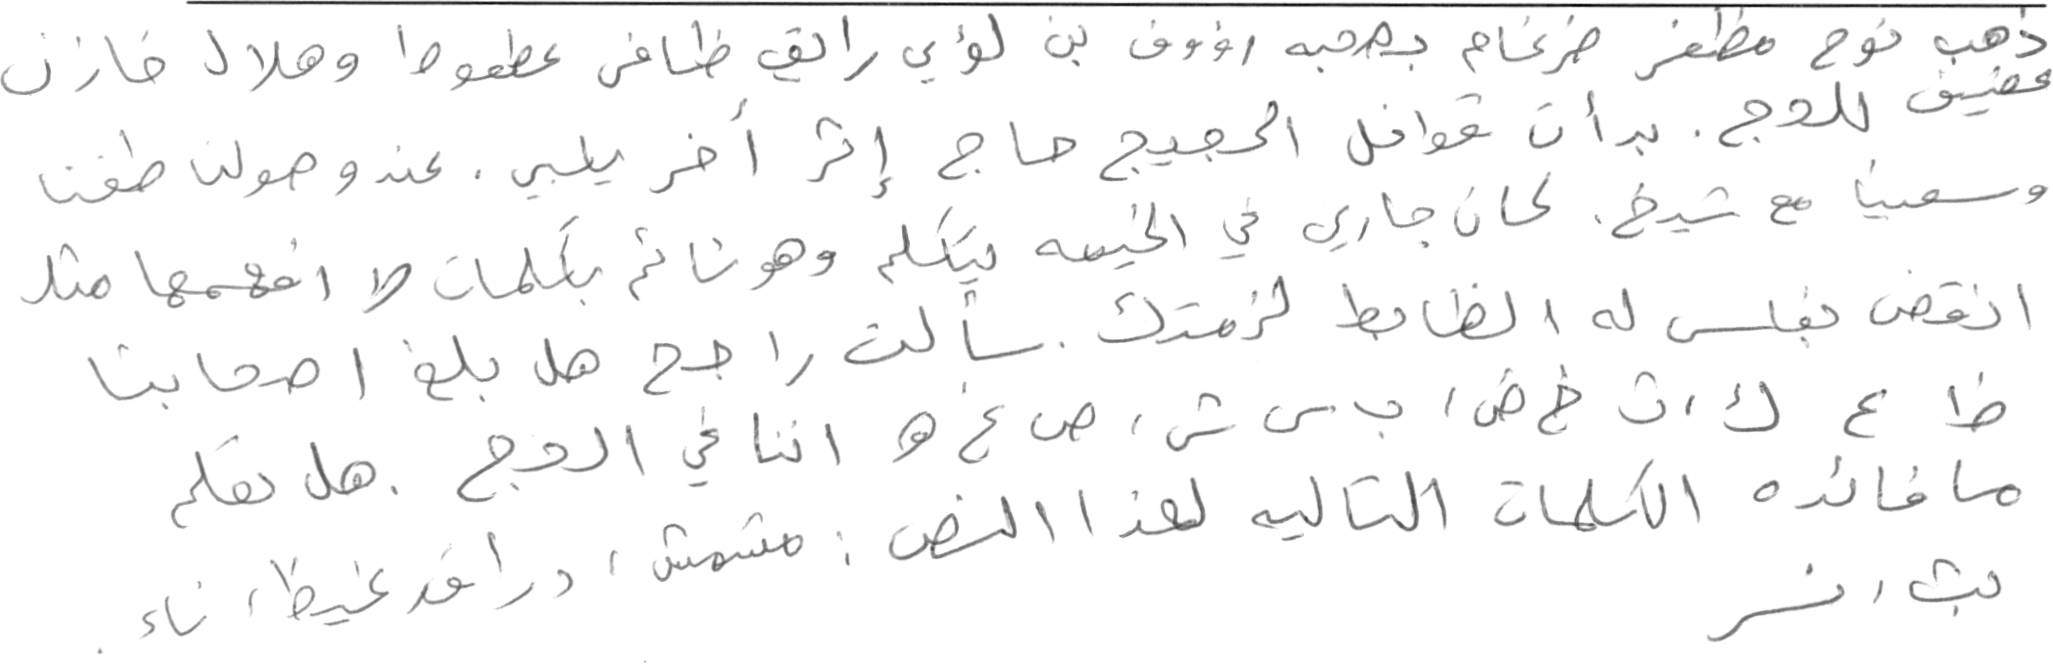 ذهب نوح مظفر ضرغام بصحبه رؤوف بن لؤي رائق ظافر عطعوط وهلال خازن
عفيف للحج. بدأت قوافل الحجيج حاج إثر أخر يلبي. عند وصولنا طفنا
وسعينا مع شيخ. كان جاري في الخيمه يتكلم وهو نائم بكلمات لا افهمها مثل
انقض بغلس له الظابط لزمتك. سألت راجح هل بلغ اصحابنا
ظ ع ك، ث خ ض، ب س ش، ص غ ه اننا في الحج. هل تعلم
ما فائده الكلمات التاليه لهذا النص: مشمش، دراق، غيظ، ناء.
بث، نسر